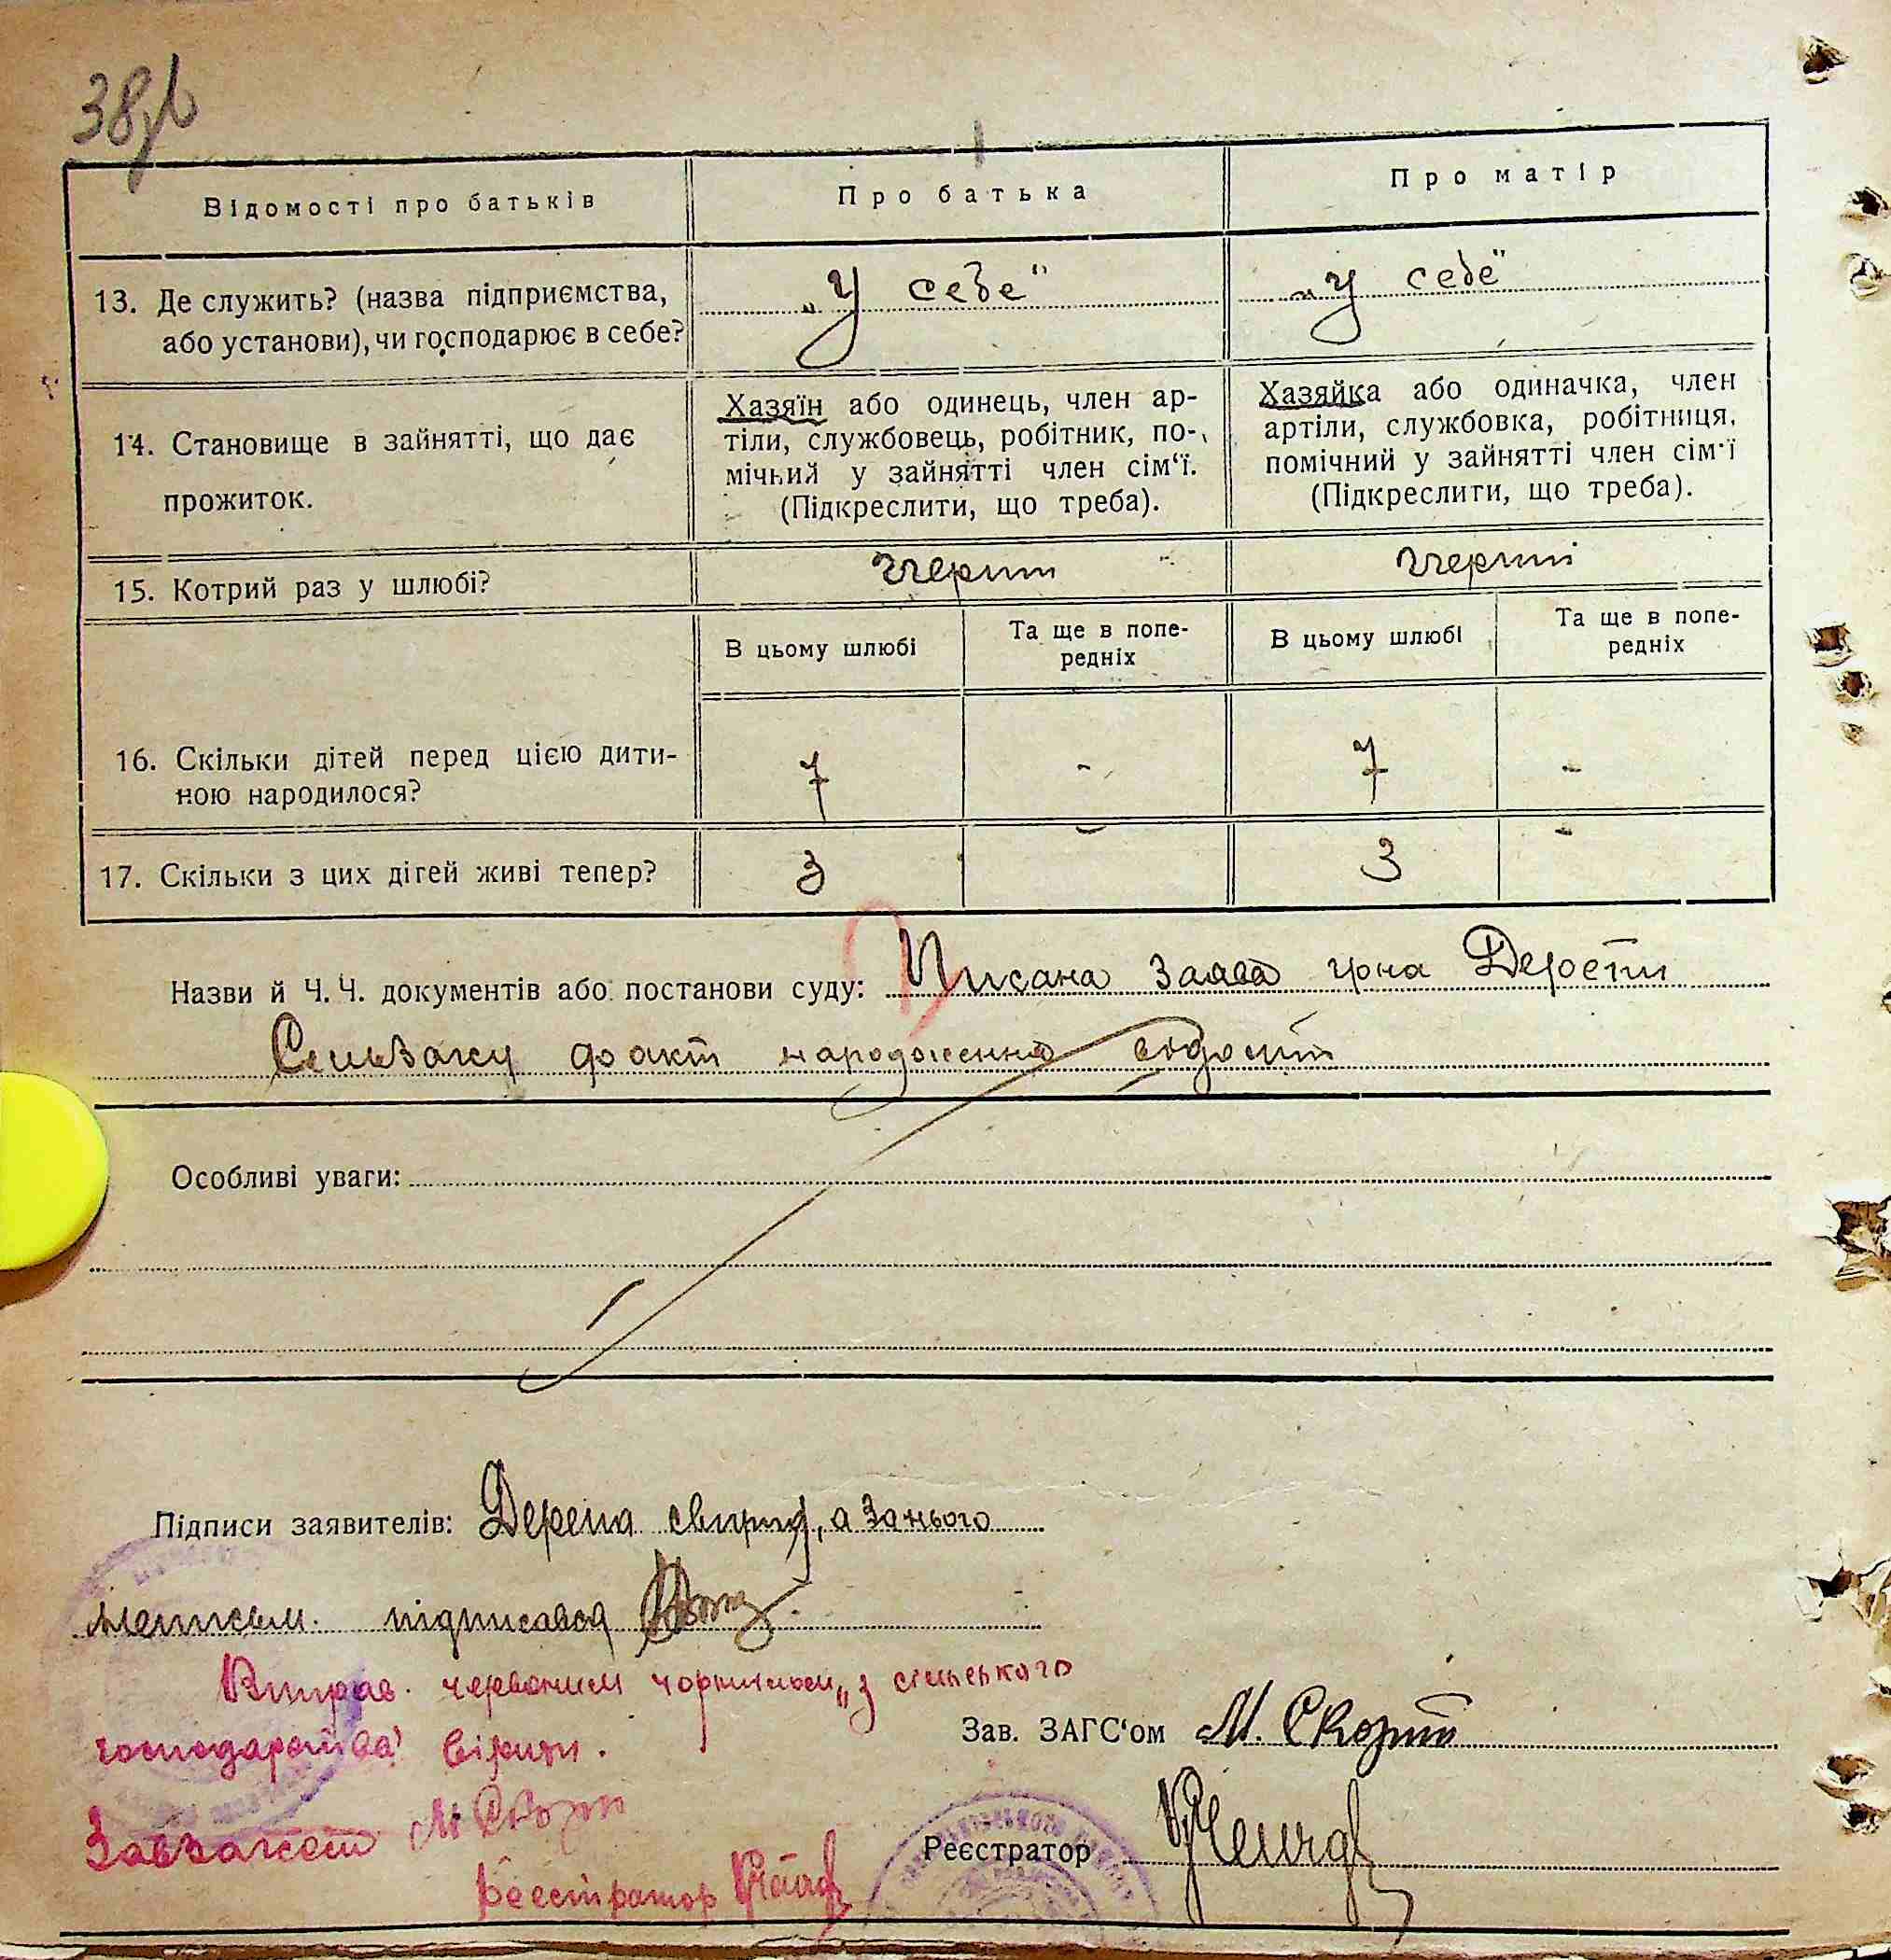 38зв
Відомості про батьків
Про батька
Про матір
13. Де служить? (назва підприємства,
або установи), чи господарює в себе?
„У себе"
„У себе"
14. Становище в зайнятті, що дає
прожиток.
Хазяїн або одинець, член ар-
тіли, службовець, робітник, по-
мічний у зайнятті член сім‘ї.
(Підкреслити, що треба).
Хазяйка або одиначка, член
артіли, службовка, робітниця,
помічний у зайнятті член сім‘ї
(Підкреслити, що треба).
15. Котрий раз у шлюбі?
В цьому шлюбі
Та ще в попе-
редніх
В цьому шлюбі
Та ще в попе-
редніх
16. Скільки дітей перед цією дити-
ною народилося?
7
-
7
-
17. Скільки з цих дітей живі тепер?
3
-
3
-
Назви й Ч. Ч. документів або постанови суду: Писана заява
факт народження
Особливі уваги:
Підписи заявителів: Дерепа свирид, а за нього
підписався
Виправ. червоним чорнилом „з сільського
господарства" вірити.
Зав. ЗАГС‘ом М.
Завзагсом М
Реєстратор
Реєстратор